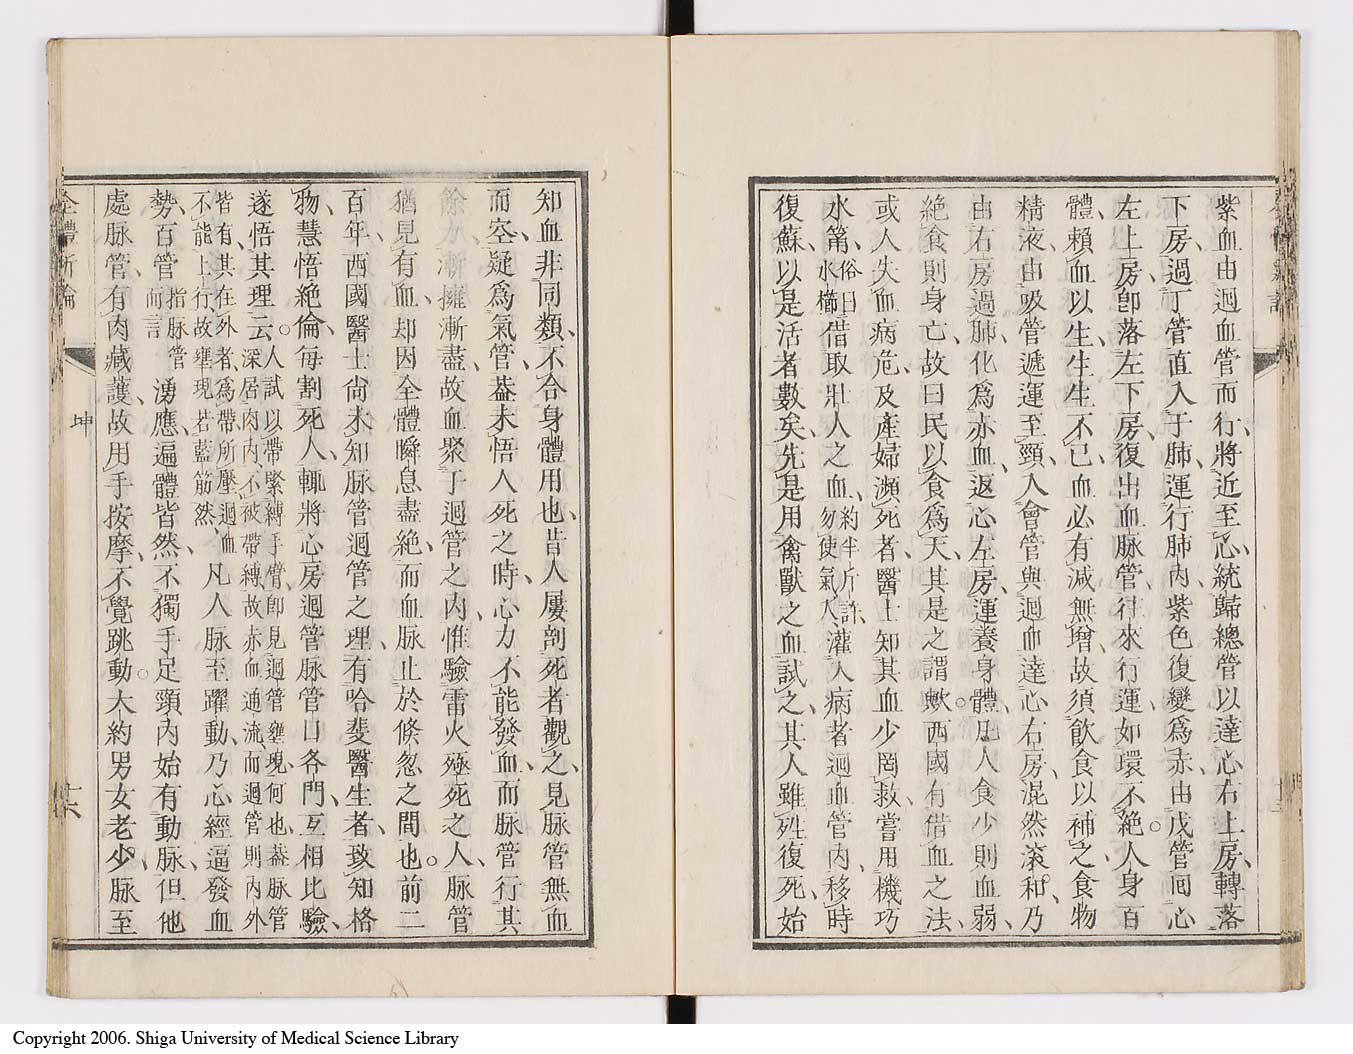 紫血由迴血管而行、將近至心、統歸總管以達心右上房、轉落
下房、過丁管直入于肺、運行肺內、紫色復變爲赤、由戊管囘心
左上房、卽落左下房、復出血脉管、往來行運、如環不絕。人身百
體、賴血以生、生生不已、血必有減無增、故須飮食以補之、食物
精液、由吸管遞運至頸、入會管與迴血達心右房、混然滚和、乃
由右房過肺、化爲赤血、返心左房、運養身體、凡人食少則血弱、
絕食則身亡、故曰民以食爲天、其是之謂歟。西國有借血之法、
或人失血病危、及產婦瀕死者、醫士知其血少罔救、嘗用機巧
水筩、俗曰水櫛借取壯人之血、約半斤許、勿使氣入、灌入病者迴血管內、移時
復蘇、以是活者數矣、先是用禽獸之血試之、其人雖甦復死、始
知血非同類、不合身體用也、昔人屢剖死者觀之、見脉管無血
而空、疑爲氣管、葢未悟人死之時、心力不能發血、而脉管行其
餘力、漸擁漸盡、故血聚于迴管之內、惟驗雷火殛死之人、脉管
猶見有血、却因全體瞬息盡絕、而血脉止於倏忽之間也。前二
百年、西國醫士尙未知脉管迴管之理、有哈斐醫生者、致知格
物、慧悟絕倫、每割死人、輒將心房迴管脉管口各門、互相比驗、
遂悟其理云。人試以帶緊縛手臂、卽見迴管壅現、何也、葢脉管深居肉內、不被帶縛、故赤血通流、而迴管則內外
皆有、其在外者、爲帶所壓、迴血不能上行、故壅現若藍筋然、凡人脉至躍動、乃心經逼發血
勢、百管指脉管而言湧應、遍體皆然、不獨手足頸內始有動脉、但他
處脉管有肉藏護、故用手按摩、不覺跳動。大約男女老少、脉至
全體新論
坤
十六